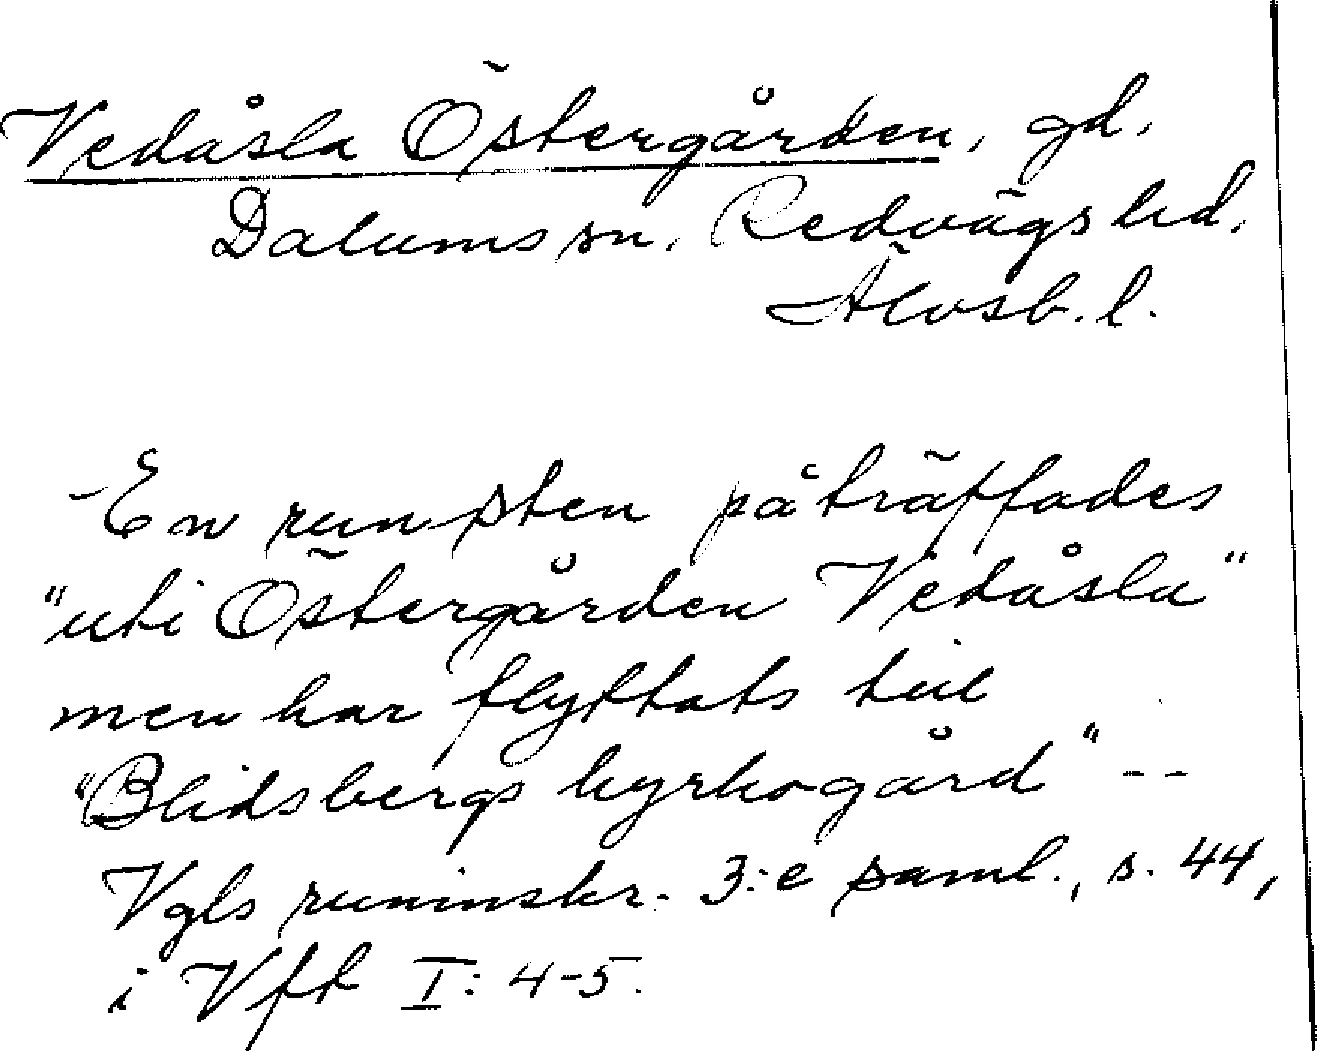 Vedåsla Östergården, gd,
Dalums sn, Redvägs hd,
Älvsb. l.
En runsten påträffades
"uti Östergården Vedåsla"
men har flyttats till
"Blidsbergs kyrkogård" --
Vgls runinskr. 3:e saml., s. 44,
i Vft I: 4-5.